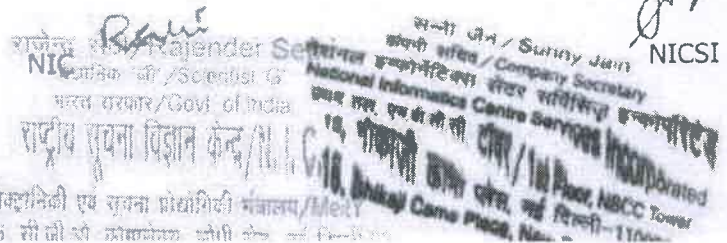 राजेन्द्र सेठी/Rajender Se
NIC
वैज्ञानिक 'जी'/Scientist G
भारत सरकार/Govt. of India
राष्ट्रीय सूचना विज्ञान केन्द्र/N.I.C.
इलेक्ट्रॉनिकी एवं सूचना प्रौद्योगिकी मंत्रालय/MeitY
सन्नी जैन / Sunny Jain
NICSI
कंपनी सचिव / Company Secretary
नेशनल इन्फोर्मेटिक्स सेंटर सर्विसिज़ इन्कॉर्पोरेटेड
National Informatics Centre Services Incorporated
प्रथम तल, एन बी सी सी टॉवर / 1st Floor, NBCC Tower
15, भीकाजी कामा प्लेस, नई दिल्ली-1100
15, Bhikaji Cama Place, New